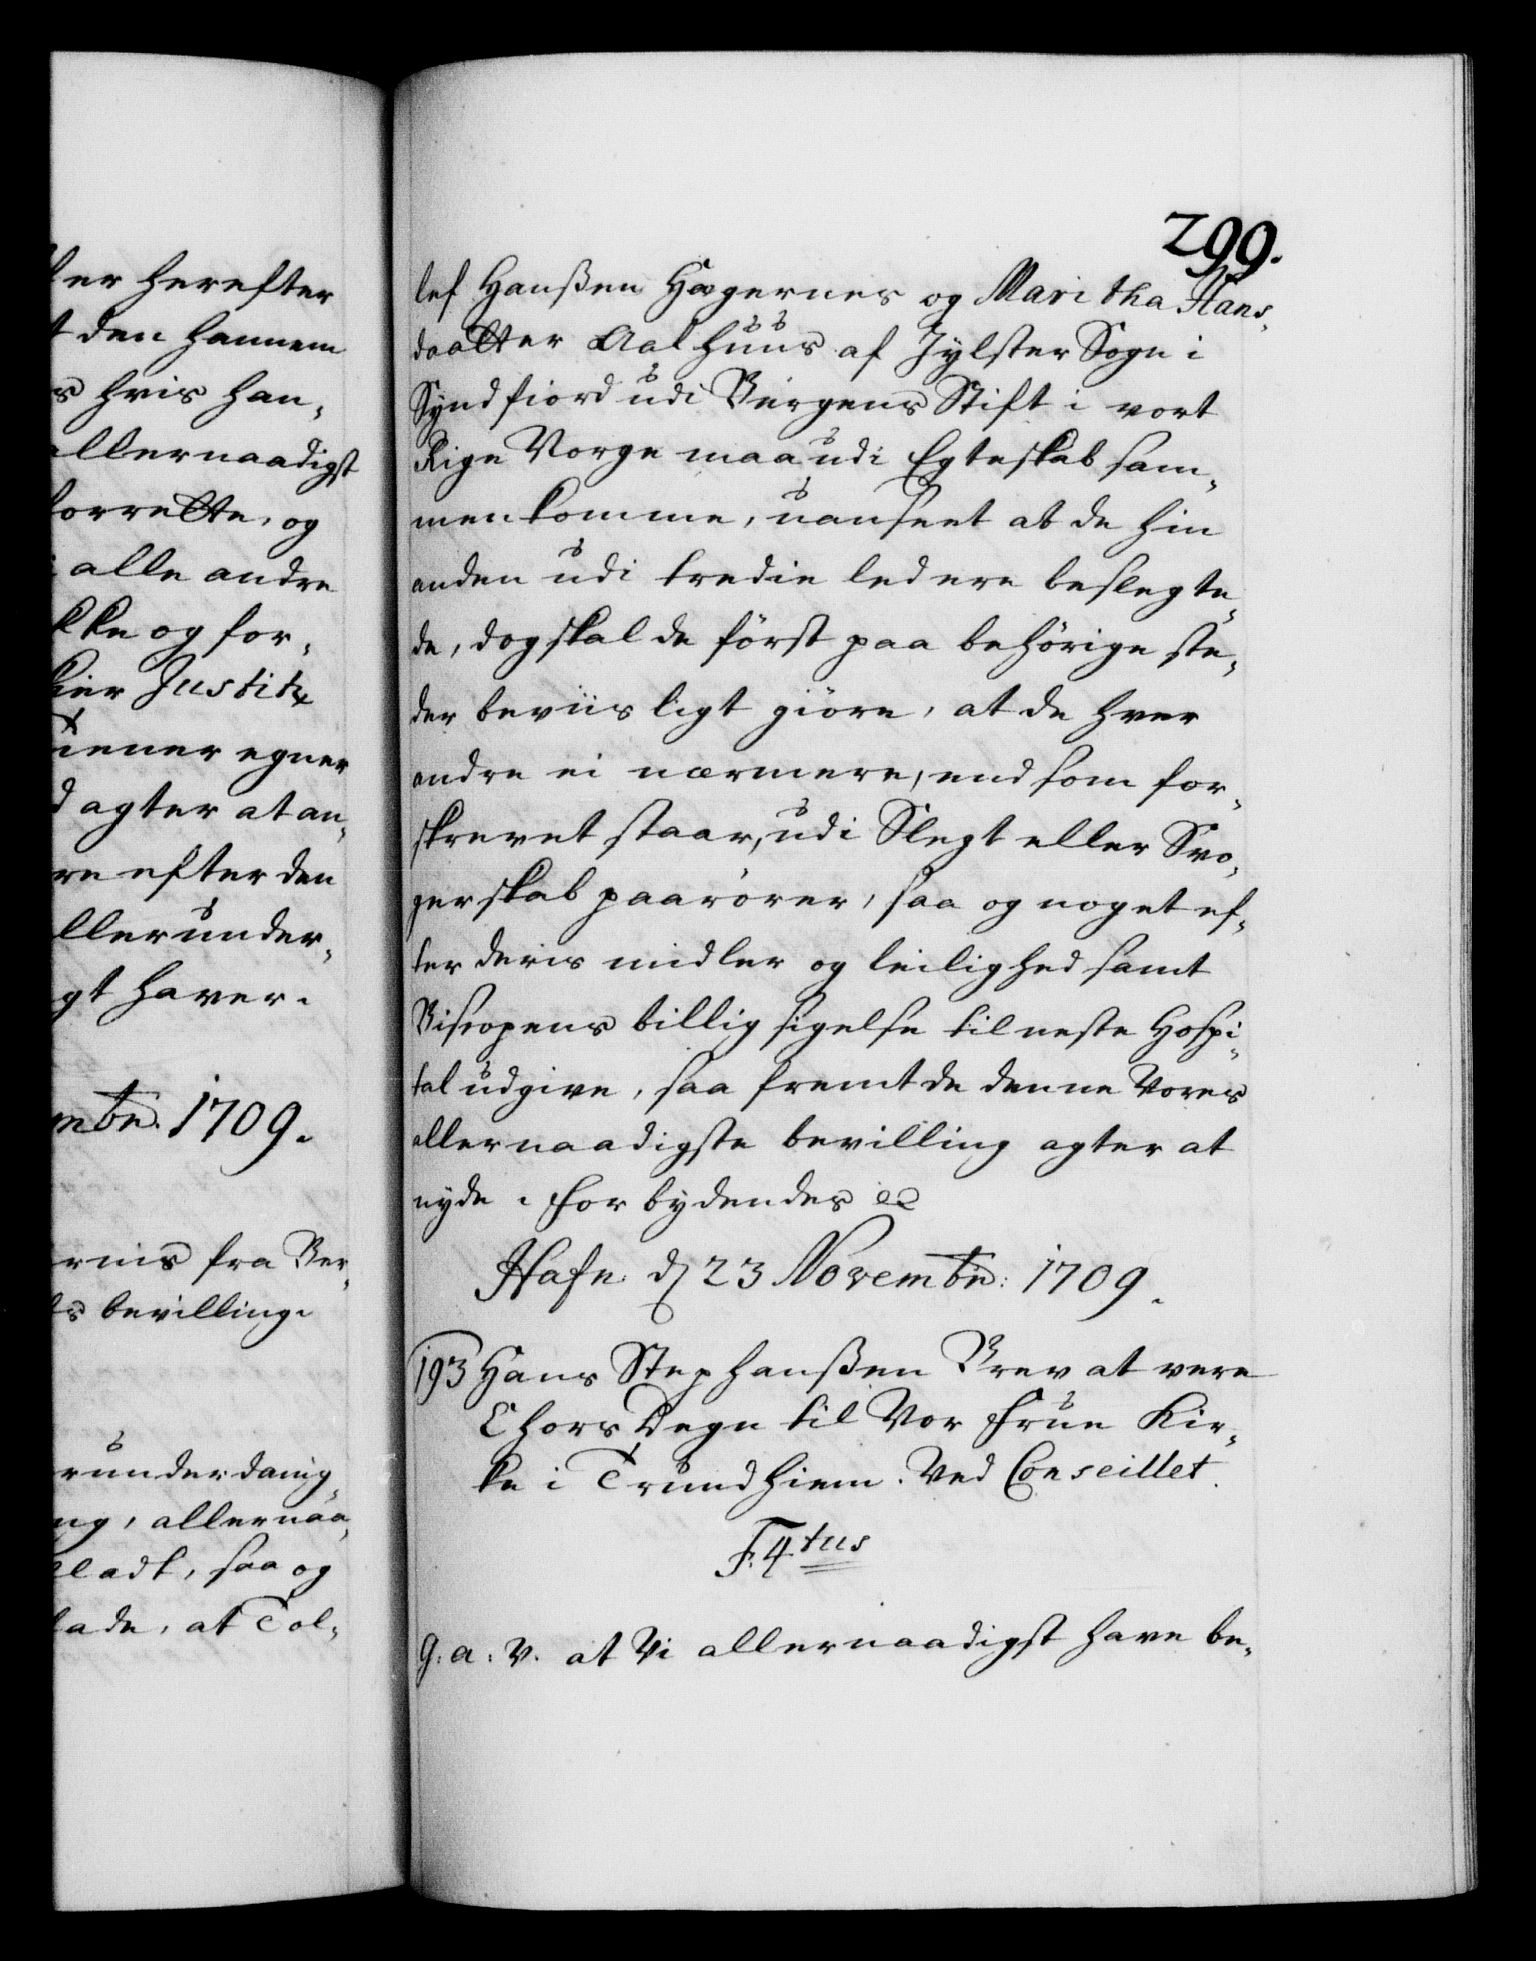 ler herefter
t den hannem
s hvis han¬
allernaadigst
forrette, og
alle andre
kke og for¬
Justitz
iener egner
d agter at an¬
re efter den
llerunder¬
gt haver.
mbr. 1709.
rnis fra Ber¬
ts bevilling.
runderdanig¬
ng, allernaa¬
ladt, saa og
lade, at Tol¬
299.
lef Hanßen Hægernes og Maritha Hans¬
daatter Aalhuus af Jylster Sogn i
Syndfiord udi Bergens Stift i vort
Rige Norge maa udi Egteskab sam¬
menkomme, uanseet at de hin
anden udi tredie led ere beslegte¬
de, dog skal de først paa behørige ste¬
der beviisligt giøre, at de hver
andre ei nærmere, end som for¬
skrevet staar, udi Slegt eller Svo¬
gerskab paarører, saa og noget ef¬
ter deris midler og leilighed samt
Biscopens billig sigelse til neste Hospi¬
tal udgive, saa fremt de denne Vores
allernaadigste bevilling agter at
nyde. Forbydendes ec
Hafn. d 23 Novembr: 1709.
193 Hans Stephanßen Brev at vere
Chors Degn til Vor Frue Kir¬
ke i Trundhiem. Ved Conseillet.
F. 4tus
G. a. V. at Vi allernaadigst have be¬